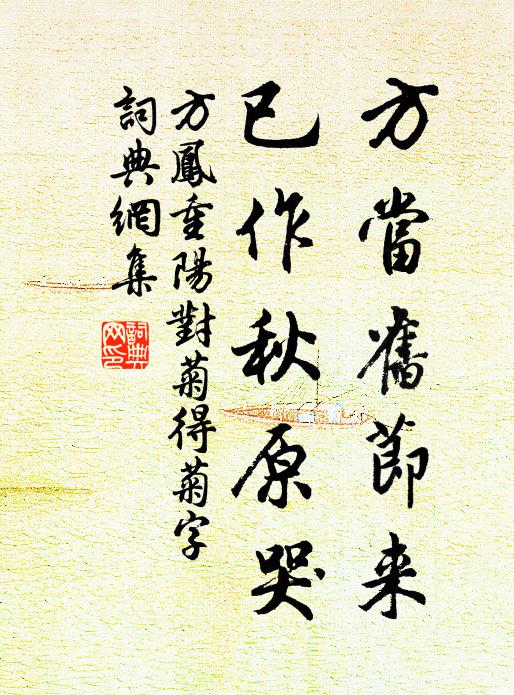 方當舊節来
已作秋原哭
方鳳重陽對菊得菊字
詞典網集
詞典網印